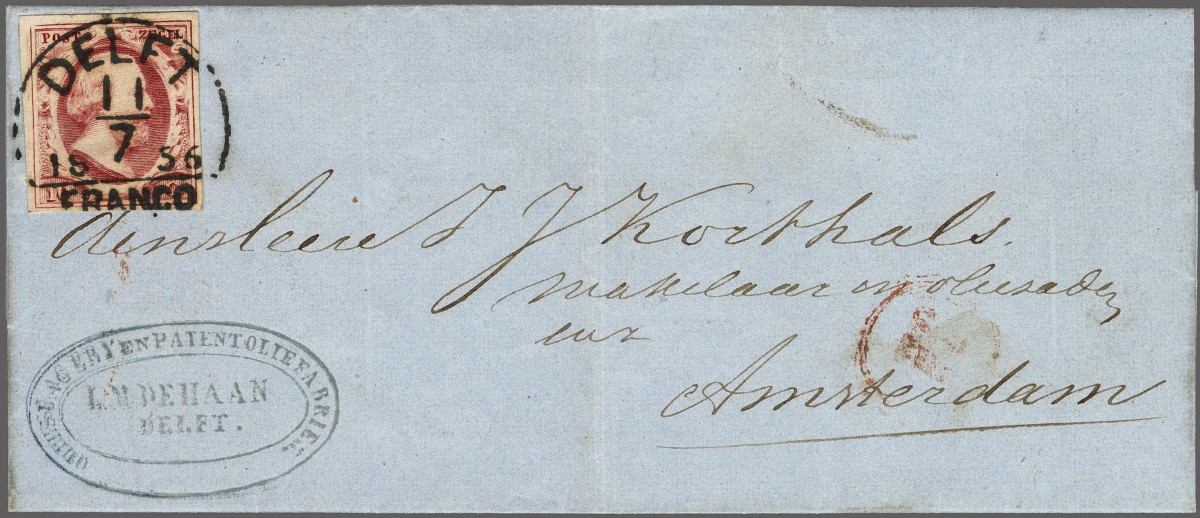 POST ZEGEL
DELFT
11
7
18 56
FRANCO
J J Korthals.
makelaar en oliezaden
enz
Amsterdam
EN PATENTOLIEFABRIEK
L.M. DE HAAN
DELFT.